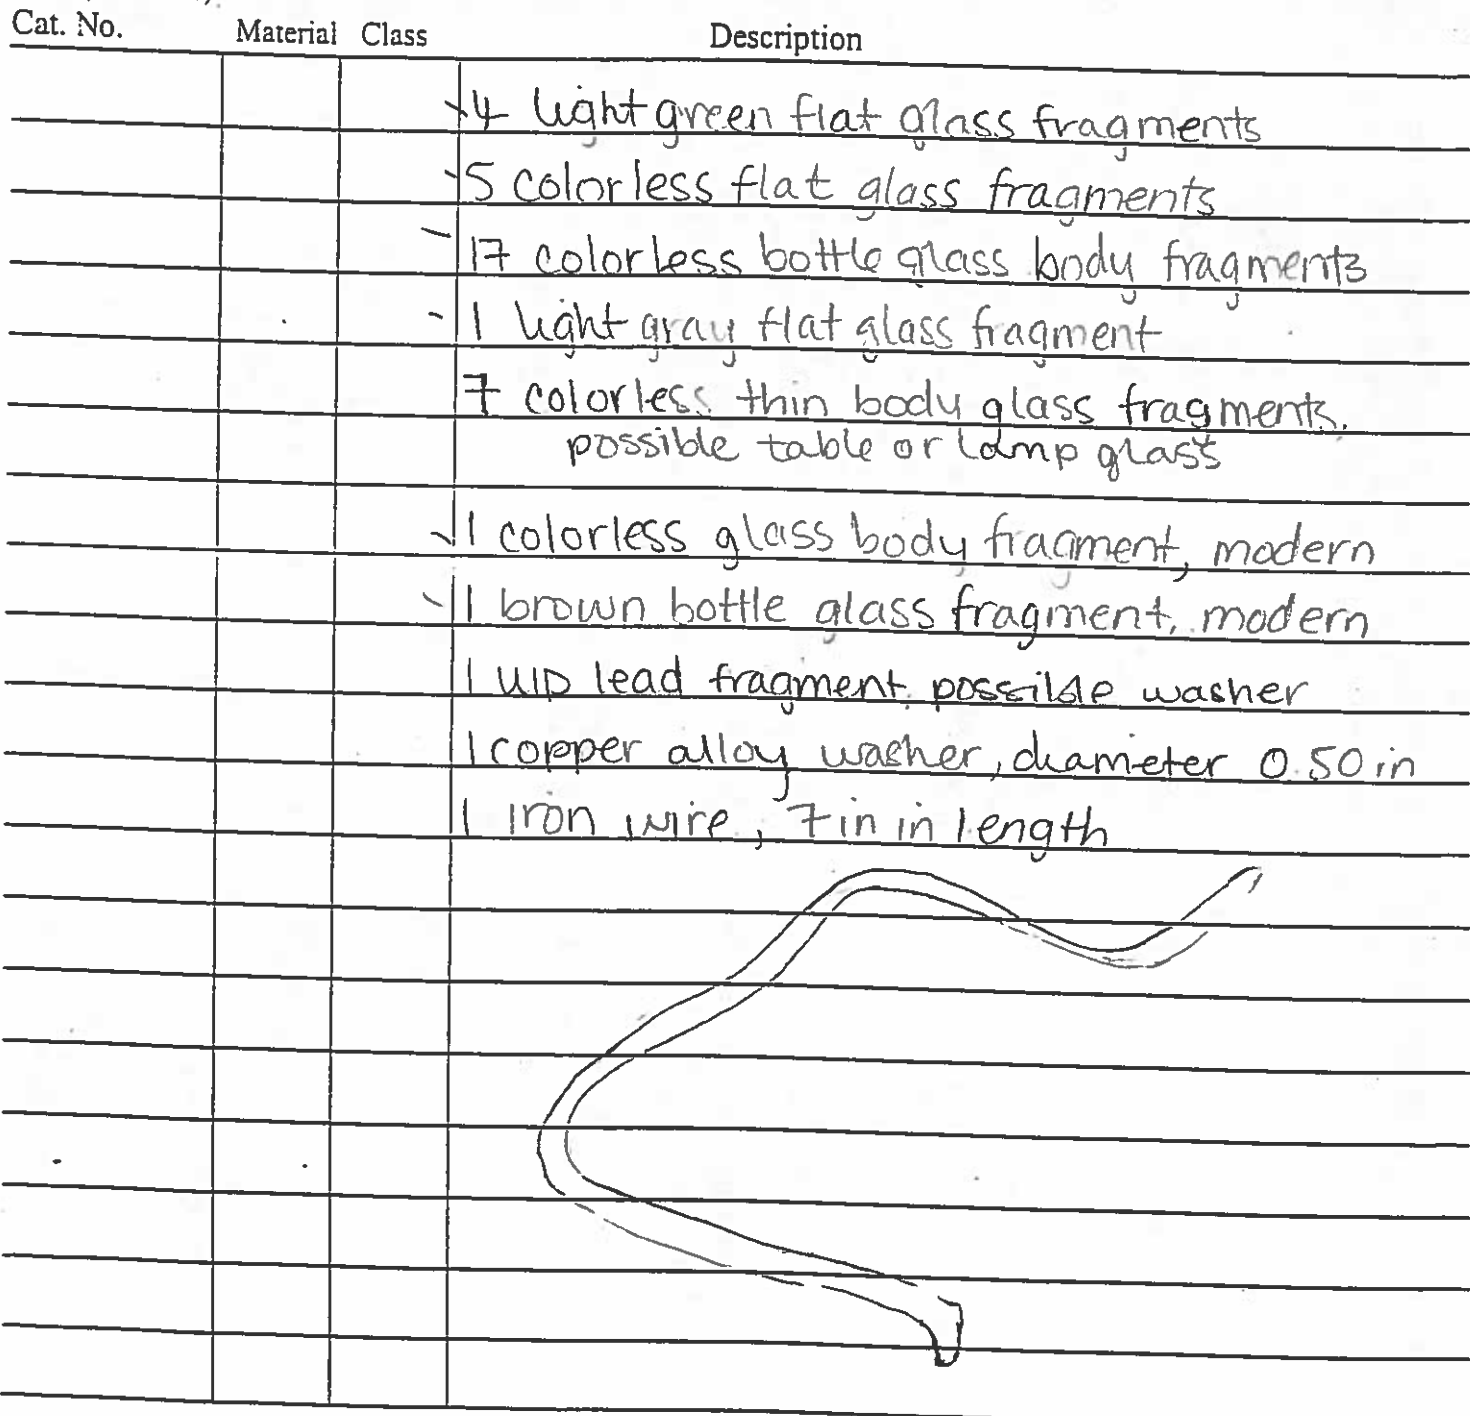 Cat. No. Material Class Description
4 light green flat glass fragments
5 colorless flat glass fragments
17 colorless bottle glass body fragments
1 light gray flat glass fragment
7 colorless thin body glass fragments.
possible table or lamp glass
1 colorless glass body fragment, modern
1 brown bottle glass fragment, modern
1 UID lead fragment, possible washer
1 copper alloy washer, diameter 0.50 in
1 iron wire, 7 in in length